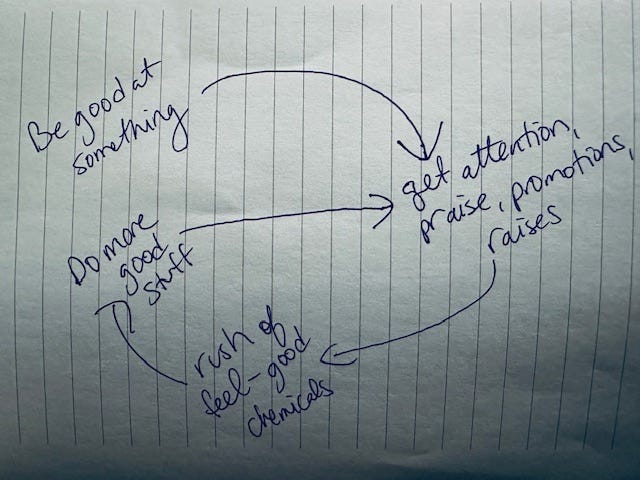 Be good at
something
get attention,
praise, promotions,
raises
Do more
good
stuff
rush of
feel-good
chemicals